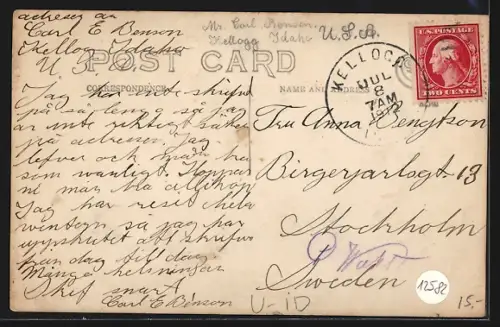 adress av
Carl E Benson
Kellog Idaho
U. S. A.
Mr. Carl Benson.
Kellogg Idaho
U.S.A.
POST CARD
CORRESPONDENCE
NAME AND ADDRESS
KELLOGG
JUL
8
7AM
U.S. POSTAGE
TWO CENTS
Jag har ej skrifvit
på så länge så jag
är inte riktigt säker
på adressen. Jag
lefver och mår bra
som wanligt. Hoppas
ni mår bra allihop
Jag har rest hela
wintern så jag har
uppskutet att skrifva
från dag till dag.
Många helsningar
Skrif snart
Carl E Benson
Fru Anna Bengtson
Birgerjarlsgt 13
Stockholm
Sweden
U-ID
12582
15.-